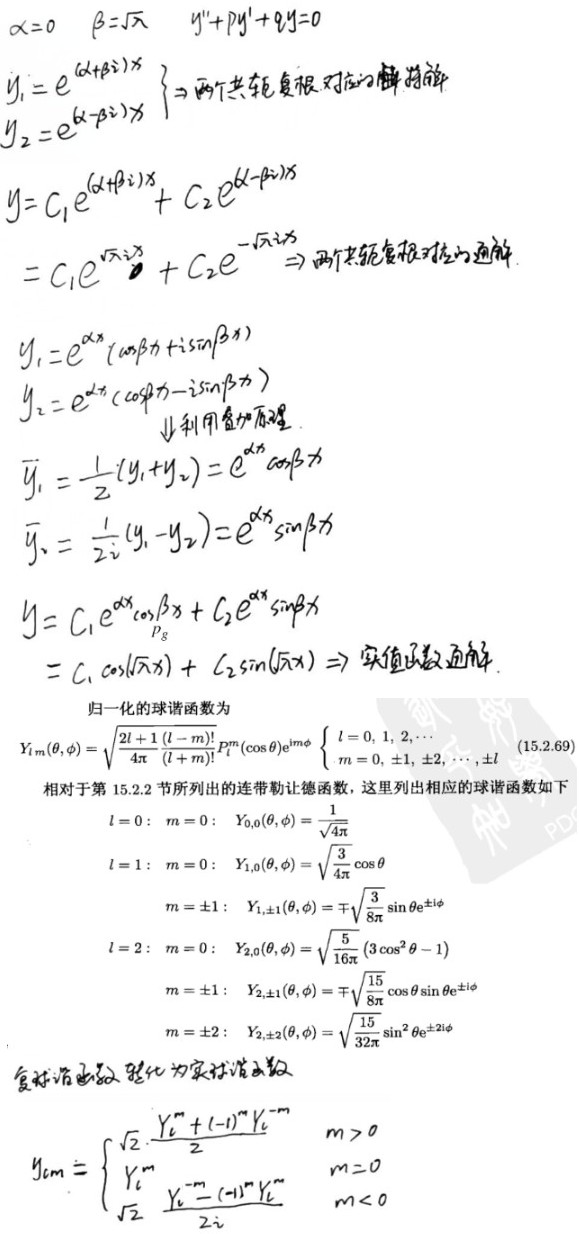 α=0 β=√λ y''+py'+qy=0
y₁=e^{(α+βi)x}
y₂=e^{(α-βi)x}
}⇒两个共轭复根对应的特解
y=C₁e^{(α+βi)x}+C₂e^{(α-βi)x}
=C₁e^{√λix}+C₂e^{-√λix}⇒两个共轭复根对应的通解.
y₁=e^{αx}(cosβx+isinβx)
y₂=e^{αx}(cosβx-isinβx)
⇓利用叠加原理.
ȳ₁=1/2(y₁+y₂)=e^{αx}cosβx
ȳ₂=1/2i(y₁-y₂)=e^{αx}sinβx
y=C₁e^{αx}cosβx+C₂e^{αx}sinβx
Pg
=C₁cos(√λx)+C₂sin(√λx)⇒实值函数通解.
归一化的球谐函数为
Y_{lm}(θ,φ)=√((2l+1)/(4π) (l-m)!/(l+m)!) P_l^m(cosθ)e^{imφ} { l=0, 1, 2,⋯ m=0, ±1, ±2, ⋯, ±l (15.2.69)
相对于第 15.2.2 节所列出的连带勒让德函数，这里列出相应的球谐函数如下
l=0: m=0: Y_{0,0}(θ,φ)=1/√(4π)
l=1: m=0: Y_{1,0}(θ,φ)=√(3/(4π)) cosθ
m=±1: Y_{1,±1}(θ,φ)=∓√(3/(8π)) sinθe^{±iφ}
l=2: m=0: Y_{2,0}(θ,φ)=√(5/(16π)) (3cos²θ-1)
m=±1: Y_{2,±1}(θ,φ)=∓√(15/(8π)) cosθsinθe^{±iφ}
m=±2: Y_{2,±2}(θ,φ)=√(15/(32π)) sin²θe^{±2iφ}
复球谐函数转化为实球谐函数
y_{lm}={ √2·(Y_l^m+(-1)^m Y_l^{-m})/2 m>0
Y_l^m m=0
√2 (Y_l^{-m}-(-1)^m Y_l^m)/2i m<0
PDG